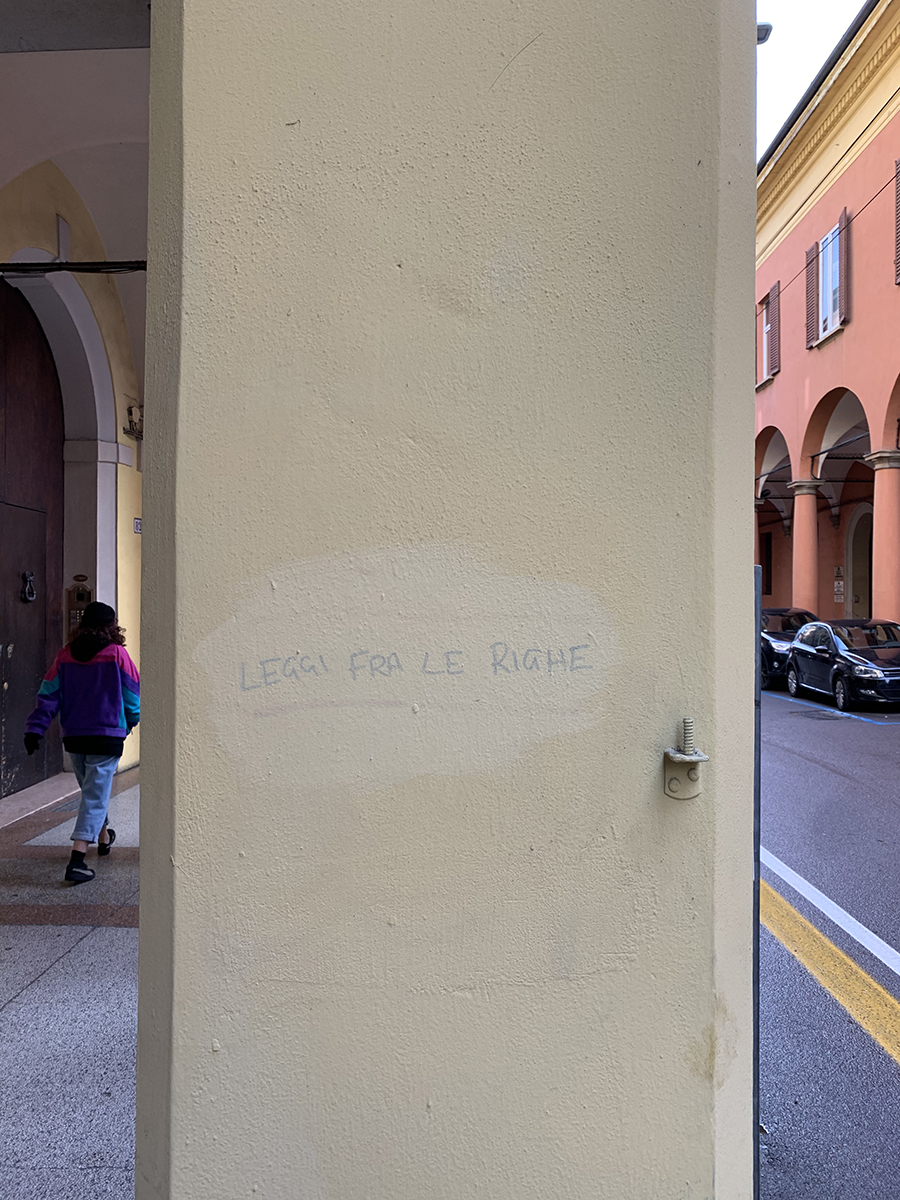 LEGGI FRA LE RIGHE